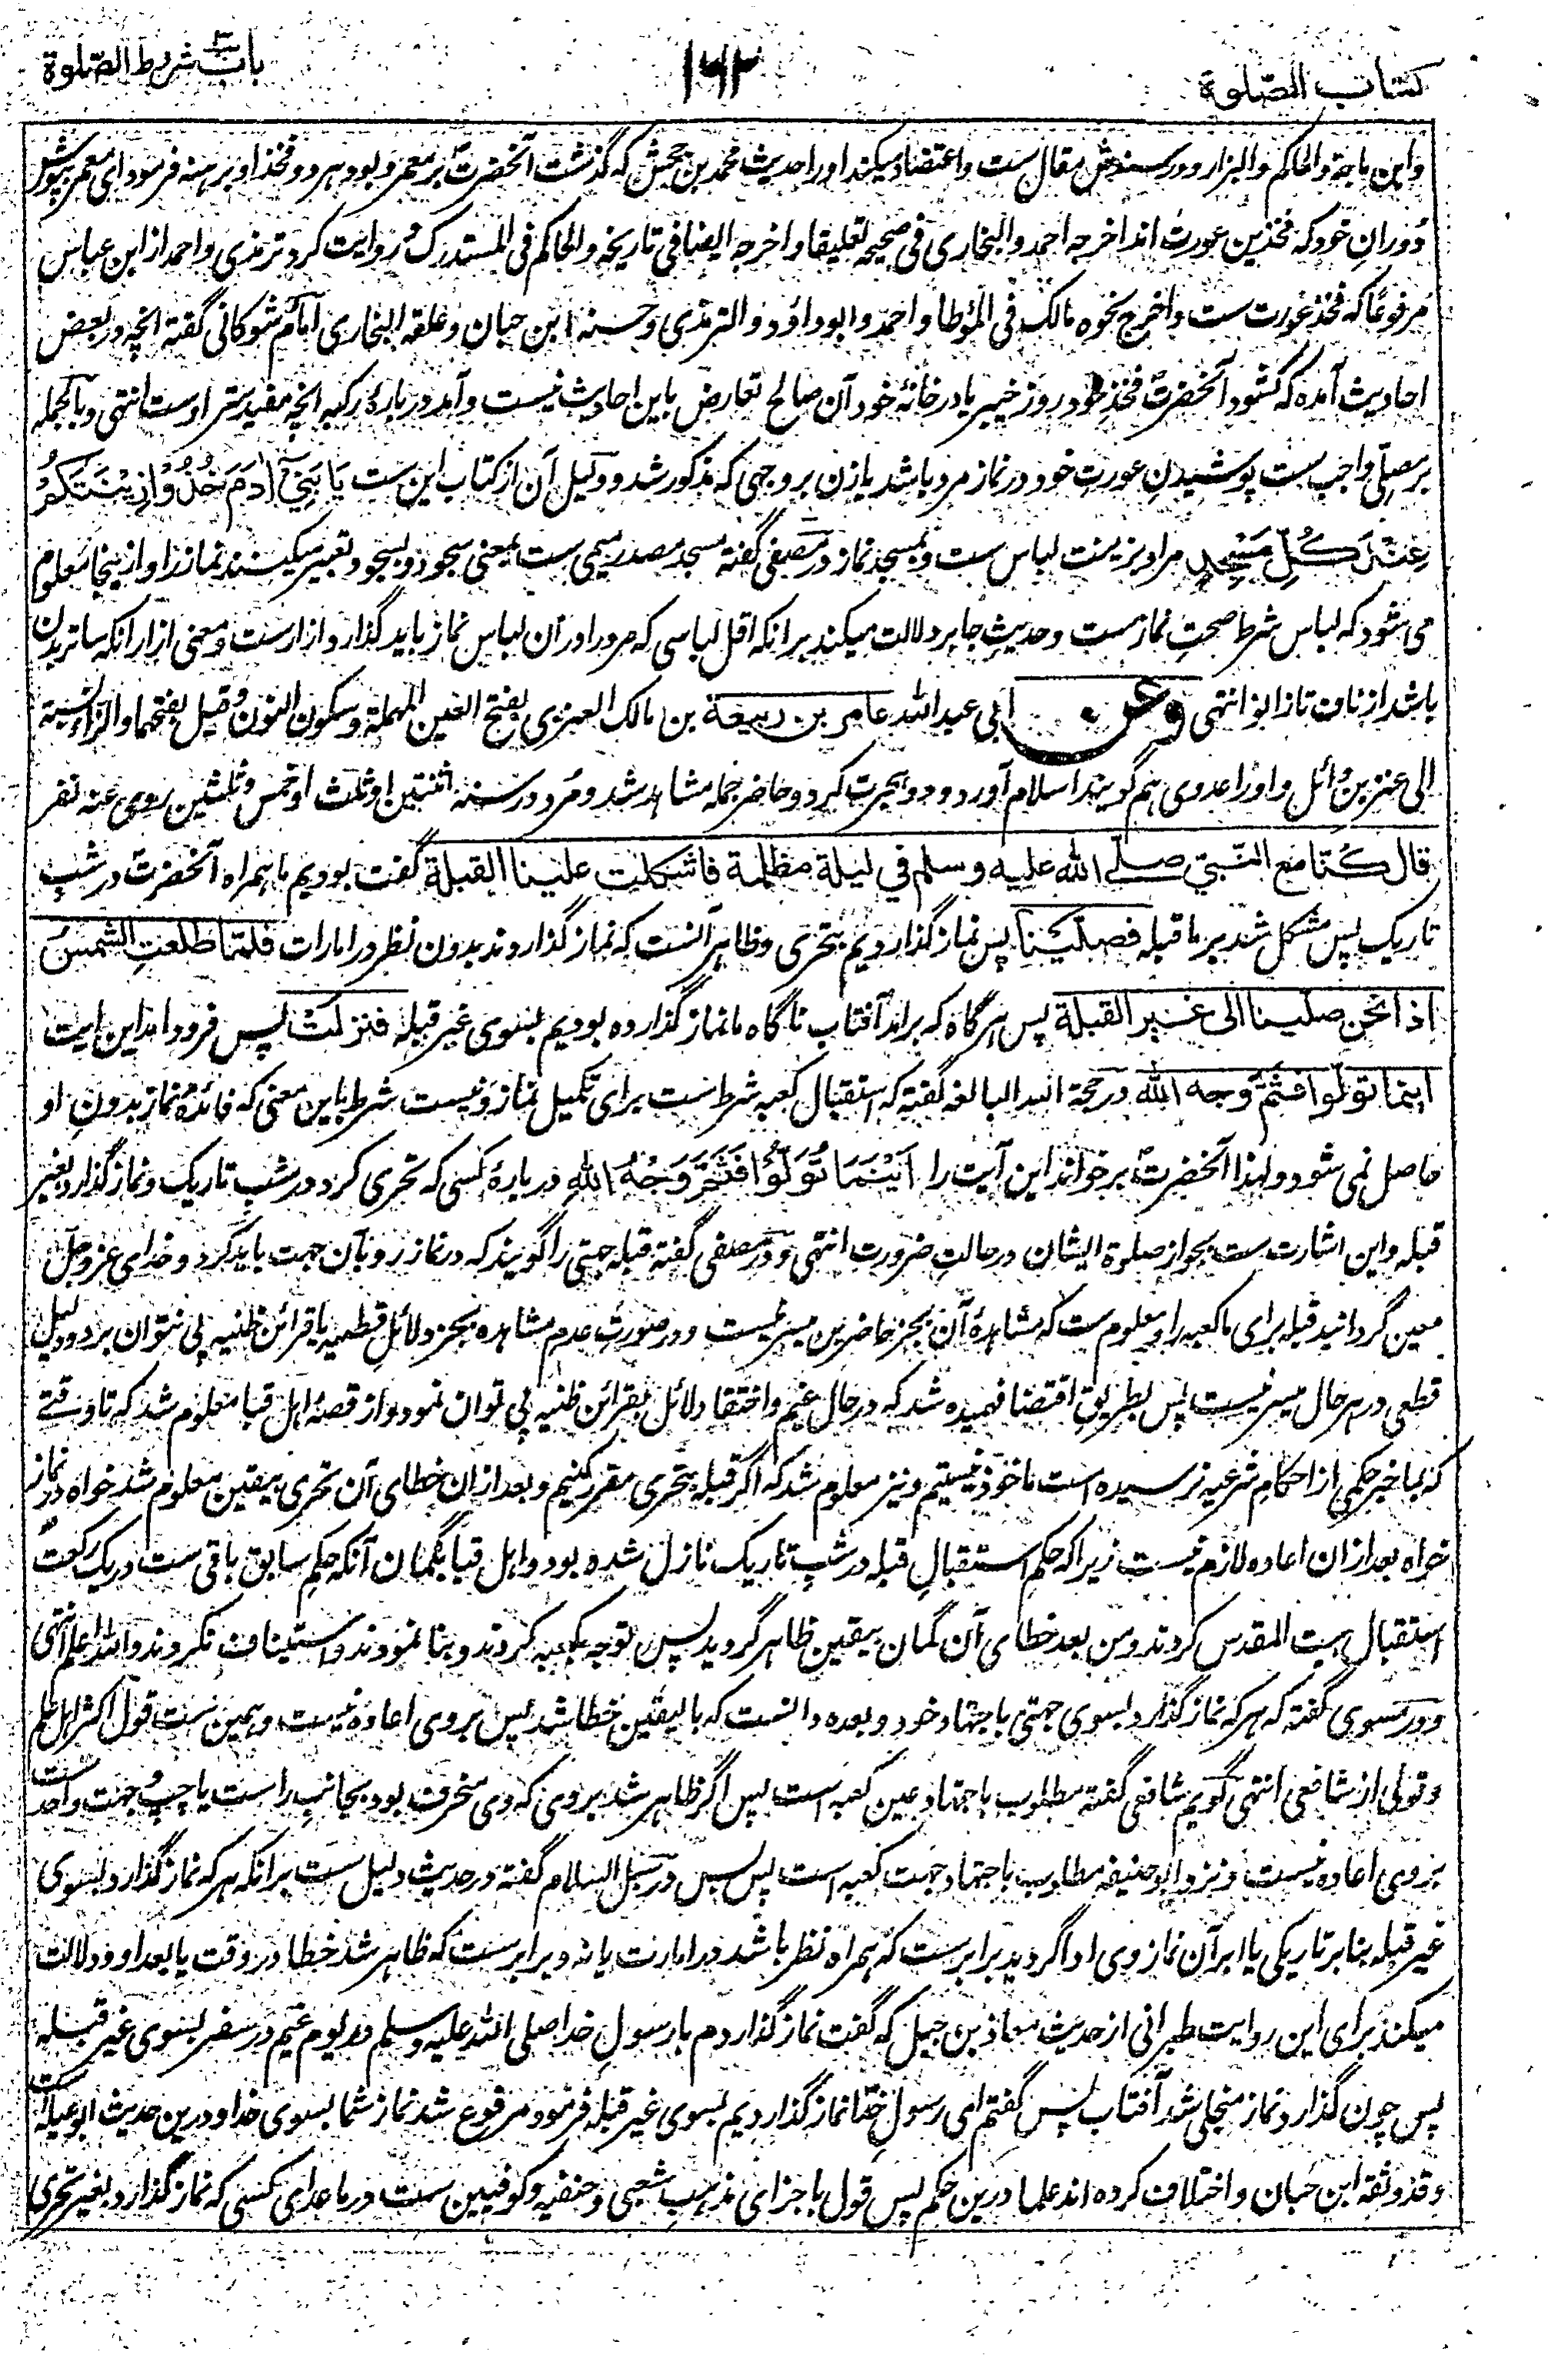 کتاب الصلوة
۱۶۲
باب شروط الصلوة
وابن ماجة والحاکم والبزار و در سندش مقال ست واعتضاد میکند او را حدیث محمد بن جحش که گذشت آنحضرت بر معمر و بود هر دو فخذ او برهنه فرمود ای معمر بپوش
دو ران خود که فخذین عورت اند اخرجه احمد والبخاری فی صحیحه تعلیقا واخرجه ایضا فی تاریخه والحاکم فی المستدرک و روایت کرد ترمذی واحمد از ابن عباس
مرفوعًا که فخذ عورت ست واخرج نحوه مالک فی المؤطا واحمد وابوداؤد والترمذی وحسنه ابن حبان وعلقه البخاری امام شوکانی گفته انچه در بعض
احادیث آمده که کشود آنحضرت فخذ خود روز خیبر یا در خانهٔ خود آن صالح تعارض باین احادیث نیست و آمد در بارهٔ رکبه انچه مفید ستر اوست انتهی وبالجمله
بر مصلی واجب ست پوشیدن عورت خود در نماز مرد باشد یا زن بر وجهی که مذکور شد و دلیل آن از کتاب این ست یَا بَنِیْ اٰدَمَ خُذُوْا زِیْنَتَکُمْ
عِنْدَ کُلِّ مَسْجِدٍ مراد بزینت لباس ست و بمسجد نماز در مصفی گفته مسجد مصدر میمی ست بمعنی سجود و بسجود تعبیر میکنند نماز را و از ینجا معلوم
می شود که لباس شرط صحت نماز ست وحدیث جابر دلالت میکند بر انکه اقل لباسی که مرد را در آن لباس نماز باید گذارد ازار ست ومعنی ازار انکه ساتر بدن
باشد از ناف تا زانو انتهی وعن ابی عبدالله عامر بن ربیعة بن مالک العنزی بفتح العین المهملة وسکون النون وقیل بفتحها والزاء نسبة
الی عنز بن وائل و او را عدوی هم گویند اسلام آورد و دو هجرت کرد و حاضر جمله مشاهد شد و مرد در سنه اثنتین او ثلث او خمس وثلثین روی عنه نفر
قال کنا مع النبی صلی الله علیه وسلم فی لیلة مظلمة فاشکلت علینا القبلة گفت بودیم ما همراه آنحضرت در شب
تاریک پس مشکل شد بر ما قبله فصلینا پس نماز گذاردیم بتحری وظاهر آنست که نماز گذاردند بدون نظر در امارات فلما طلعت الشمس
اذا نحن صلینا الی غیر القبلة پس هرگاه که برآمد آفتاب ناگاه ما نماز گذارده بودیم بسوی غیر قبله فنزلت پس فرود آمد این آیت
اینما تولوا فثم وجه الله در حجة الله البالغه گفته که استقبال کعبه شرط ست برای تکمیل نماز و نیست شرط باین معنی که فائدهٔ نماز بدون او
حاصل نمی شود ولهذا آنحضرت برخواند این آیت را اَیْنَمَا تُوَلُّوْا فَثَمَّ وَجْهُ اللهِ در بارهٔ کسی که تحری کرد در شب تاریک و نماز گذارد بغیر
قبله واین اشارت ست بجواز صلوة ایشان در حالت ضرورت انتهی و در مصفی گفته قبله جهتی را گویند که در نماز رو بآن جهت باید کرد و خدای عز وجل
معین گردانید قبله برای ما کعبه را و معلوم ست که مشاهدهٔ آن بجز حاضرین میسر نیست و در صورت عدم مشاهده بجز دلائل قطعیه یا قرائن ظنیه پی نتوان برد و دلیل
قطعی در هر حال میسر نیست پس بطریق اقتضا فهمیده شد که در حال غیم و اختفا دلائل بقرائن ظنیه پی توان نمود و از قصهٔ اهل قبا معلوم شد که تا وقتے
که بما خبر حکمی از احکام شرعیه نرسیده است ماخوذ نیستیم و نیز معلوم شد که اگر قبله بتحری مقرر کنیم و بعد از ان خطای آن تحری بیقین معلوم شد خواه در نماز
خواه بعد از ان اعاده لازم نیست زیراکه حکم استقبال قبله در شب تاریک نازل شده بود و اهل قبا بگمان آنکه حکم سابق باقی ست در یک رکعت
استقبال بیت المقدس کردند و من بعد خطای آن گمان بیقین ظاهر گردید پس توجه بکعبه کردند و بنا نمودند و استیناف نکردند والله اعلم انتهی
و در مسوی گفته که هر که نماز گذارد بسوی جهتی باجتهاد خود و بعده دانست که بالیقین خطا شد پس بر وی اعاده نیست و همین ست قول اکثر اهل علم
و قولی از شافعی انتهی گویم شافعی گفته مطلوب باجتهاد عین کعبه است پس اگر ظاهر شد بر وی که وی منحرف بود بجانب راست یا چپ و جهت واحد ست
بر وی اعاده نیست و نزد ابو حنیفه مطلوب باجتهاد جهت کعبه است پس بس و در سبل السلام گفته در حدیث دلیل ست بر انکه هر که نماز گذارد بسوی
غیر قبله بنا بر تاریکی یا ابر آن نماز وی ادا گردید برابر ست که همراه نظر باشد در امارت یا نه و برابر ست که ظاهر شد خطا در وقت یا بعد او و دلالت
میکند برای این روایت طبرانی از حدیث معاذ بن جبل که گفت نماز گذاردم با رسول خدا صلی الله علیه وسلم در یوم غیم در سفر بسوی غیر قبله
پس چون گذارد نماز منجلی شد آفتاب پس گفتم ای رسول خدا نماز گذاردیم بسوی غیر قبله فرمود مرفوع شد نماز شما بسوی خدا و درین حدیث ابو عبله است
وقد وثقه ابن حبان و اختلاف کرده اند علما درین حکم پس قول باجزای مذهب شعبی وحنفیه وکوفیین ست در ماعدای کسی که نماز گذارد بغیر تحری